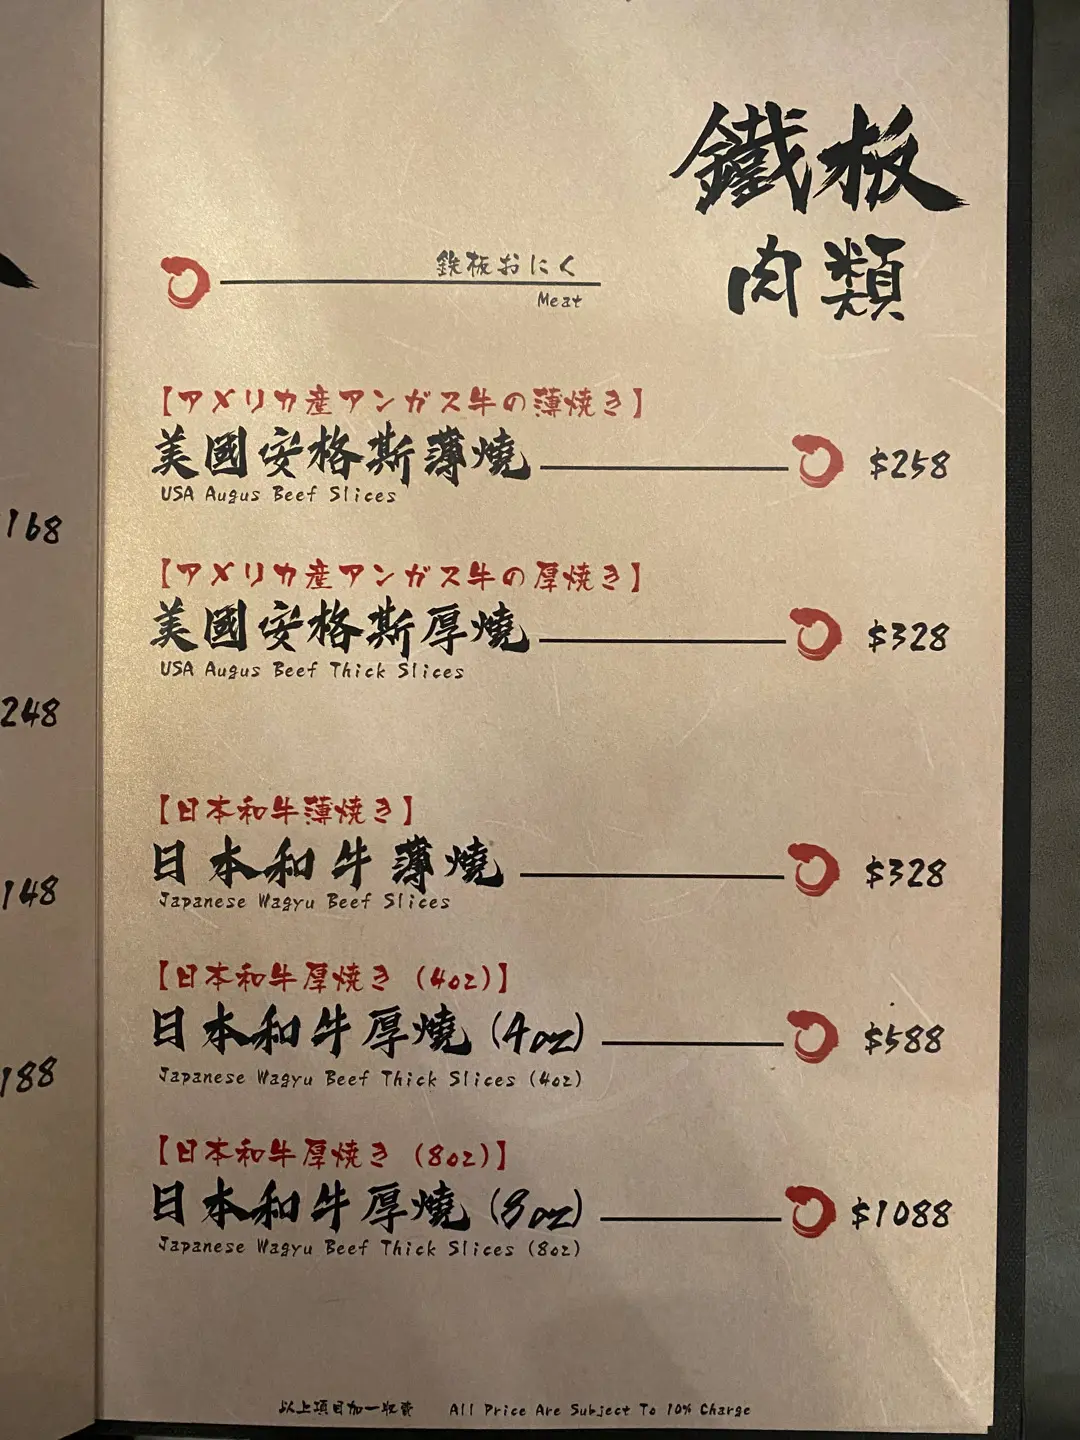 鐵板
肉類
鉄板おにく
Meat
【アメリカ産アンガス牛の薄焼き】
美國安格斯薄燒 $258
USA Augus Beef Slices
【アメリカ産アンガス牛の厚焼き】
美國安格斯厚燒 $328
USA Augus Beef Thick Slices
【日本和牛薄焼き】
日本和牛薄燒 $328
Japanese Wagyu Beef Slices
【日本和牛厚焼き (4oz)】
日本和牛厚燒 (4oz) $588
Japanese Wagyu Beef Thick Slices (4oz)
【日本和牛厚焼き (8oz)】
日本和牛厚燒 (8oz) $1088
Japanese Wagyu Beef Thick Slices (8oz)
以上項目加一收費 All Price Are Subject To 10% Charge
168
248
148
188